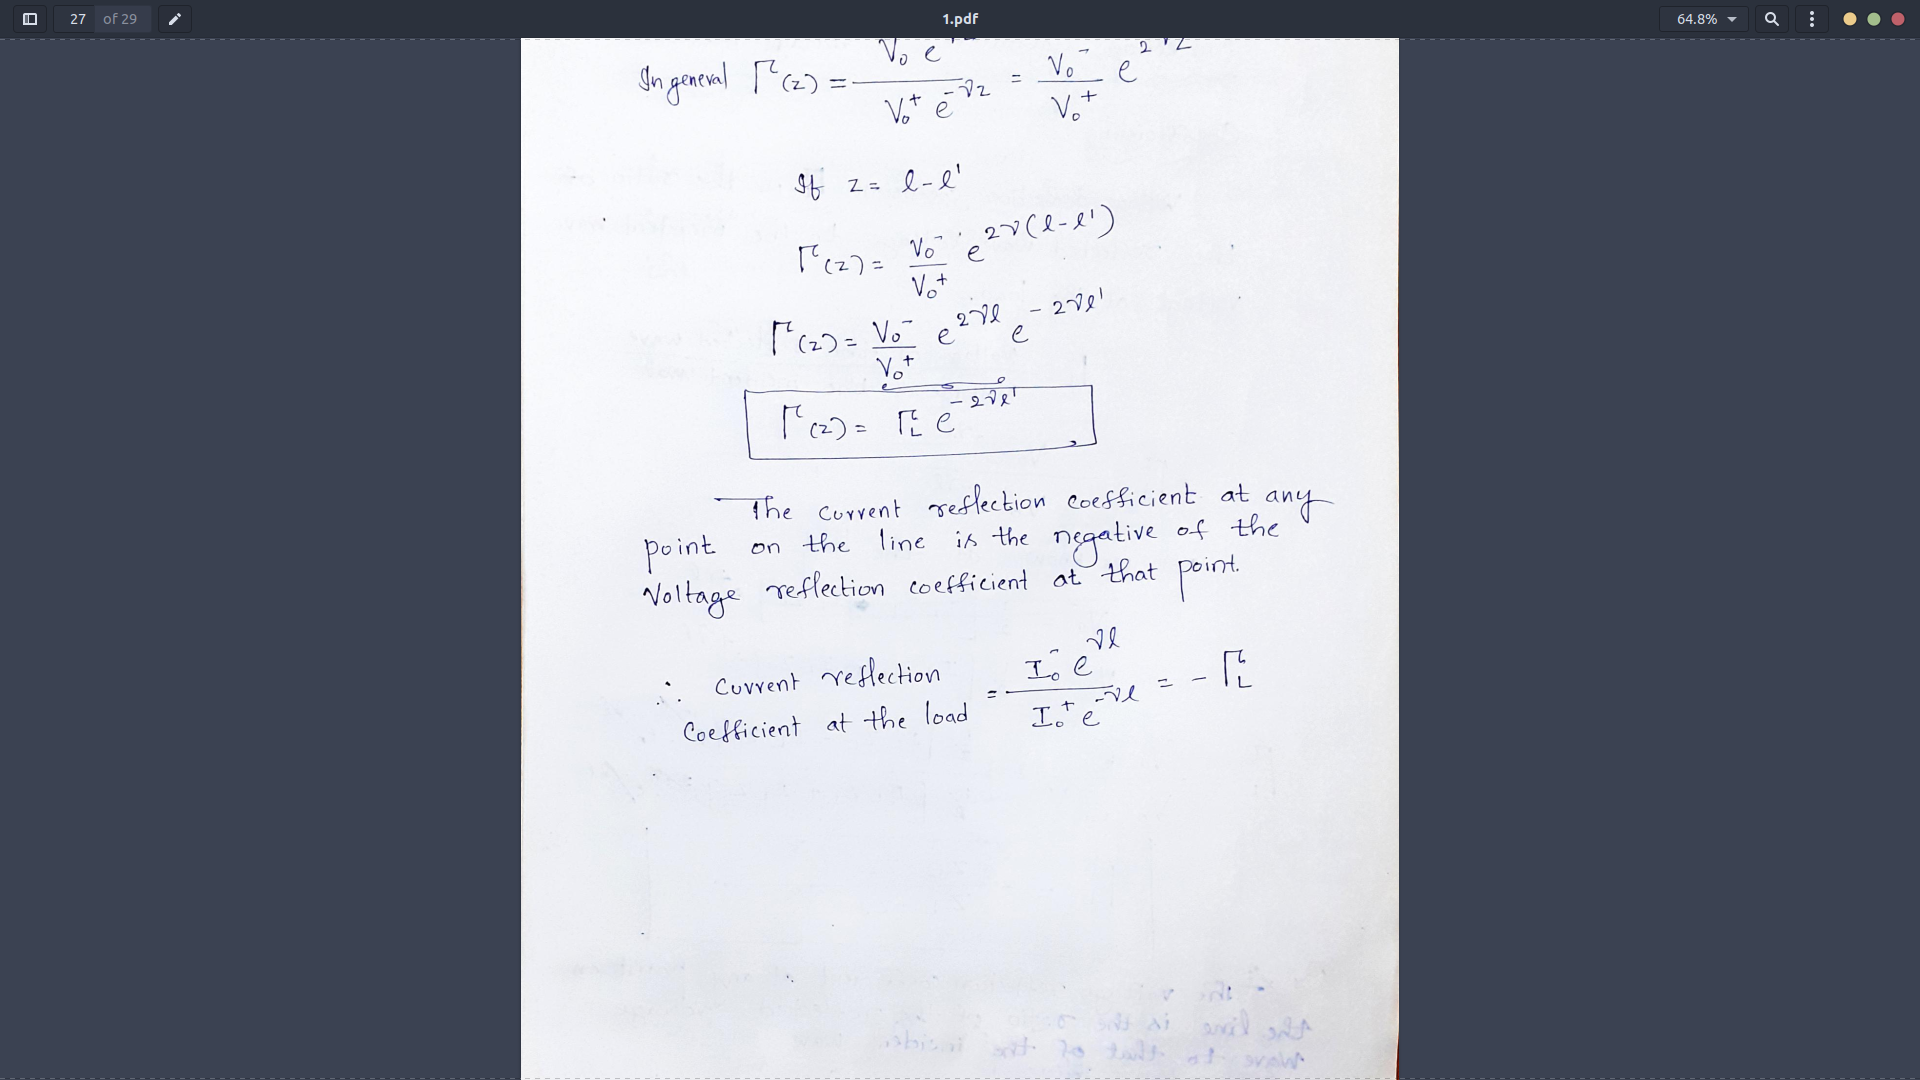 27 of 29
1.pdf
64.8%
In general Γ(z) = V₀ e / V₀⁺ e^-γz = V₀⁻ / V₀⁺ e^2γz
If z = l-l'
Γ(z) = V₀⁻ / V₀⁺ e^2γ(l-l')
Γ(z) = V₀⁻ / V₀⁺ e^2γl e^-2γl'
Γ(z) = Γ_L e^-2γl'
The current reflection coefficient at any
point on the line is the negative of the
Voltage reflection coefficient at that point.
∴ Current reflection
Coefficient at the load = I₀⁻ e^γl / I₀⁺ e^-γl = - Γ_L